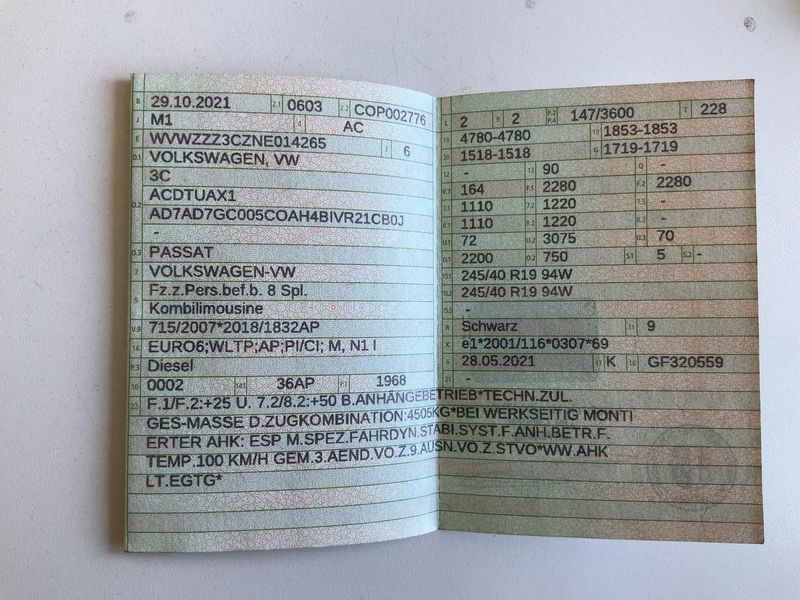 B 29.10.2021 2.1 0603 2.2 COP002776
J M1 4 AC
E WVWZZZ3CZNE014265 3 6
D.1 VOLKSWAGEN, VW
3C
D.2 ACDTUAX1
AD7AD7GC005COAH4BIVR21CB0J
-
D.3 PASSAT
2 VOLKSWAGEN-VW
5 Fz.z.Pers.bef.b. 8 Spl.
Kombilimousine
V.9 715/2007*2018/1832AP
14 EURO6;WLTP;AP;PI/CI; M, N1 I
P.3 Diesel
10 0002 14.1 36AP P.1 1968
L 2 9 2 P.2 P.4 147/3600 T 228
18 4780-4780 19 1853-1853
20 1518-1518 G 1719-1719
12 - 13 90 Q -
V.7 164 F.1 2280 F.2 2280
7.1 1110 7.2 1220 7.3 -
8.1 1110 8.2 1220 8.3 -
U.1 72 U.2 3075 U.3 70
O.1 2200 O.2 750 S.1 5 S.2 -
15.1 245/40 R19 94W
15.2 245/40 R19 94W
15.3 -
R Schwarz 11 9
K e1*2001/116*0307*69
6 28.05.2021 17 K 16 GF320559
21 -
22 F.1/F.2:+25 U. 7.2/8.2:+50 B.ANHÄNGEBETRIEB*TECHN.ZUL.
GES-MASSE D.ZUGKOMBINATION:4505KG*BEI WERKSEITIG MONTI
ERTER AHK: ESP M.SPEZ.FAHRDYN.STABI.SYST.F.ANH.BETR.F.
TEMP.100 KM/H GEM.3.AEND.VO.Z.9.AUSN.VO.Z.STVO*WW.AHK
LT.EGTG*